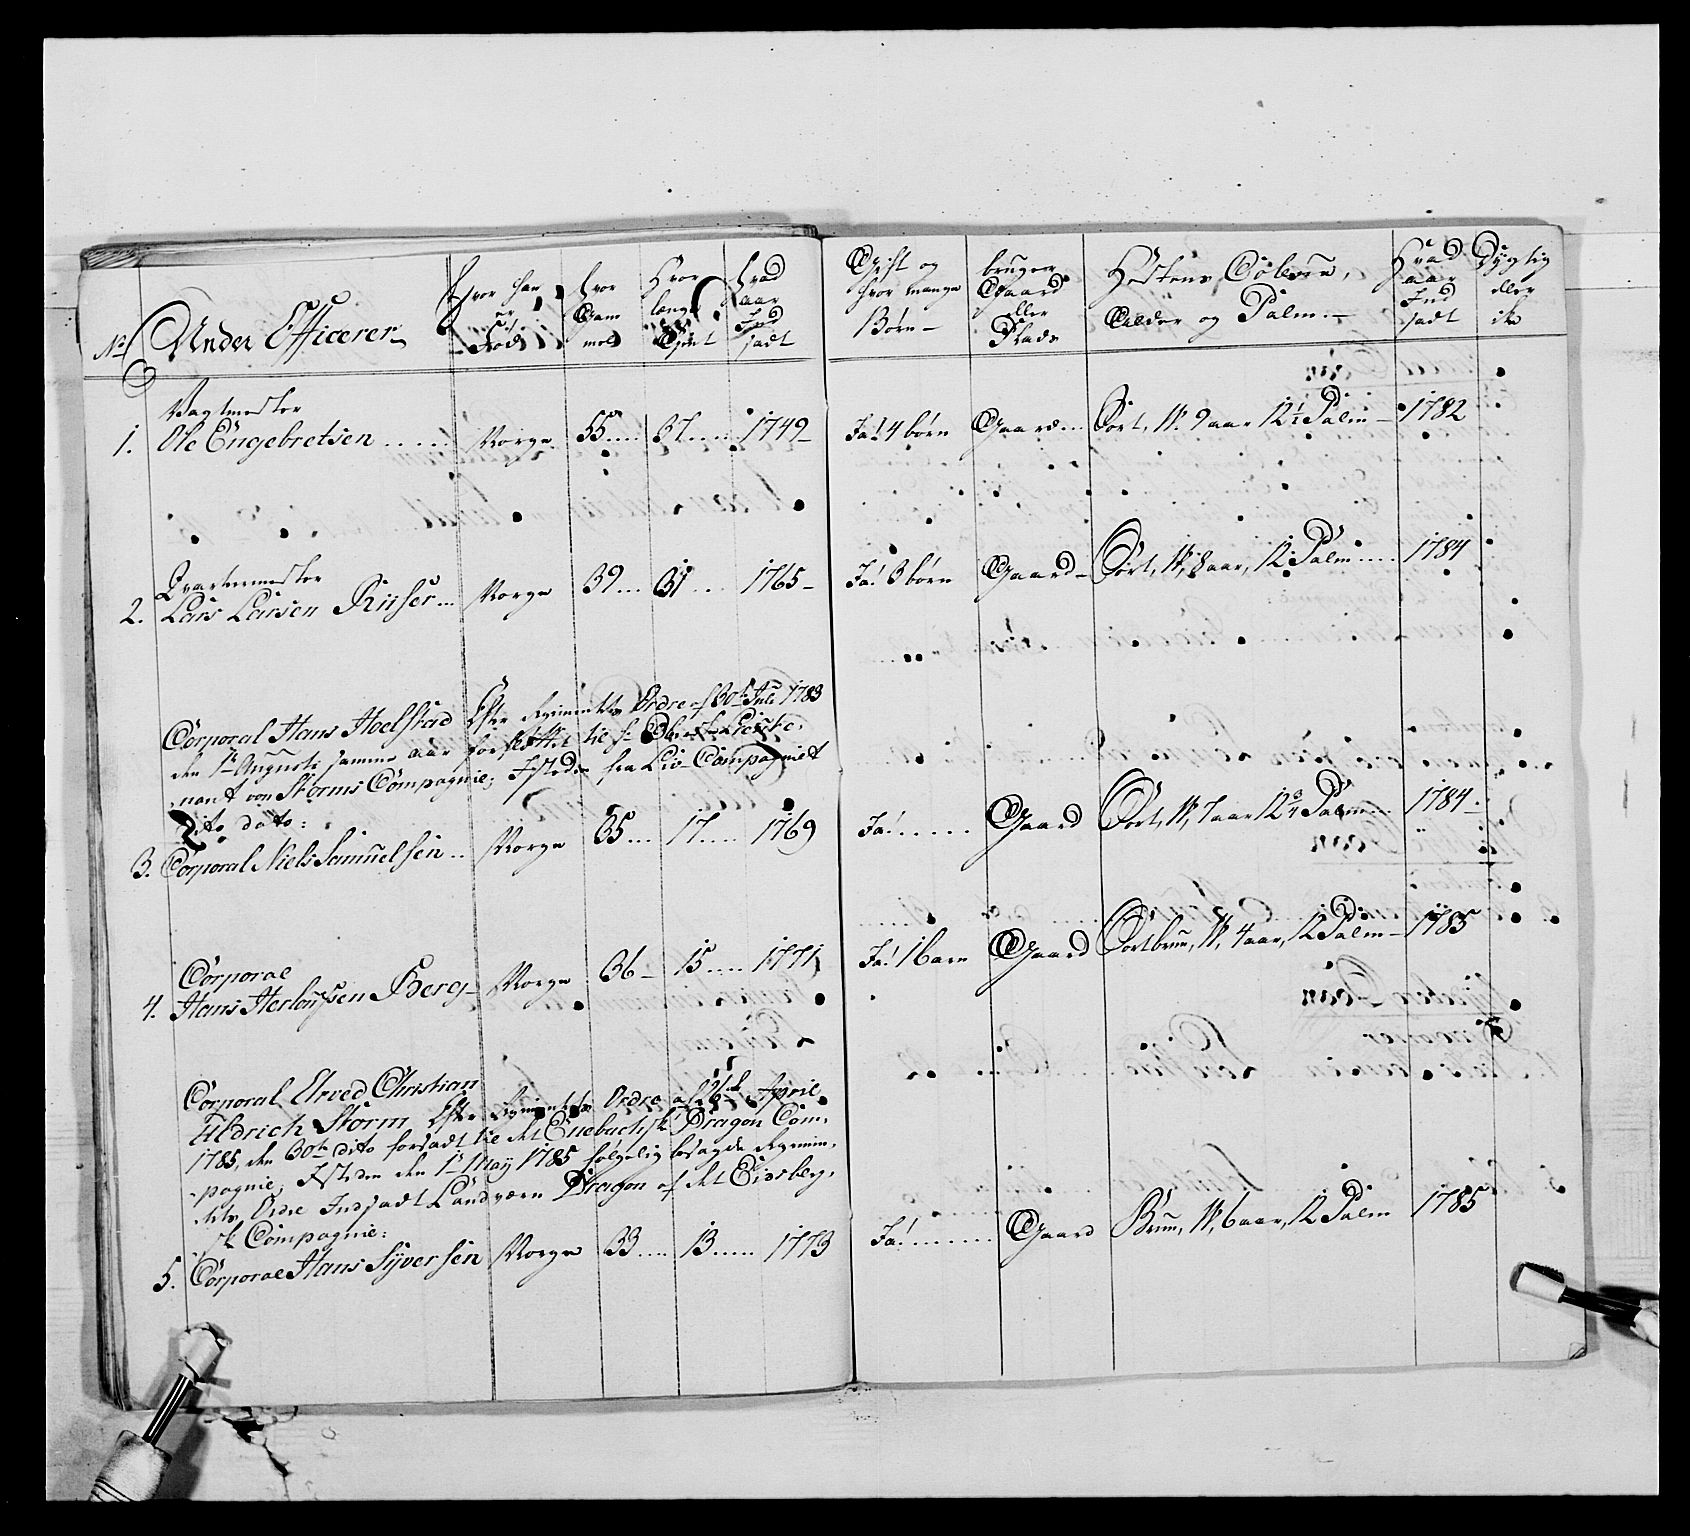 No
Under Officerer
Hvor han er Född
Hvor Gammel
Hvor længe Tjent
Hvad aar Indsadt
Gift og hvor mange Børn
bruger Gaard eller Plads
Hestens Coleur, Alder og Palm.
Hvad aar Ind sadt
Dygtig eller ik
Vagtmester
1. Ole Engebretsen ...... Norge 55.... 37.... 1749 Ja! 4 børn Gaard... Sort, W. 9 aar 12½ Palm 1782
Qvartermester
2. Lars Larsen Riiser... Norge 39.... 31.... 1765 Ja! 3 børn Gaard Sort, W, 8 aar, 12 Palm..... 1784
Corporal Hans Hoelstad Efter Regimentets Ordre af 30te Juli 1783
den 1te Augusti samme aar forflöttet til Hr Obrist-Lieute-
nant von Storms Compagnie; Isteden fra Liv-Compagniet
Dito dato:
3. Corporal Niels Samuelsen.. Norge 35.... 17..... 1769 Ja!...... Gaard Sort, W, 7 aar 12¾ Palm... 1784
Corporal
4. Hans Herlousen Berg Norge 36 15..... 1771 Ja! 1 Barn Gaard Sortbrun, W, 4 aar, 12 Palm 1785
Corporal Elved Christian
Uldrich Storm Efter Regimentets Ordre af 26de April
1785, den 30te dito forsadt til det Enebachske Dragon Com-
pagnie, Isteden den 1te Maÿ 1785 følgelig besagde Regimen-
tets Ordre Indsadt Landværn Dragon af det Eidsberg-
sk Compagnie:
5. Corporal Hans Syversen Norge 33..... 13...... 1773 Ja!........ Gaard Brun, W, 6 aar, 12 Palm 1785